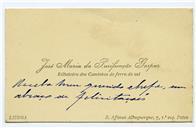 José Maria da Purificação Gaspar
Bilheteiro dos Caminhos de ferro do sul
Receba um grande chefe, um
abraço de felicitações
LISBOA
R. Affonso Albuquerque, 7, 1.º esq. Potes